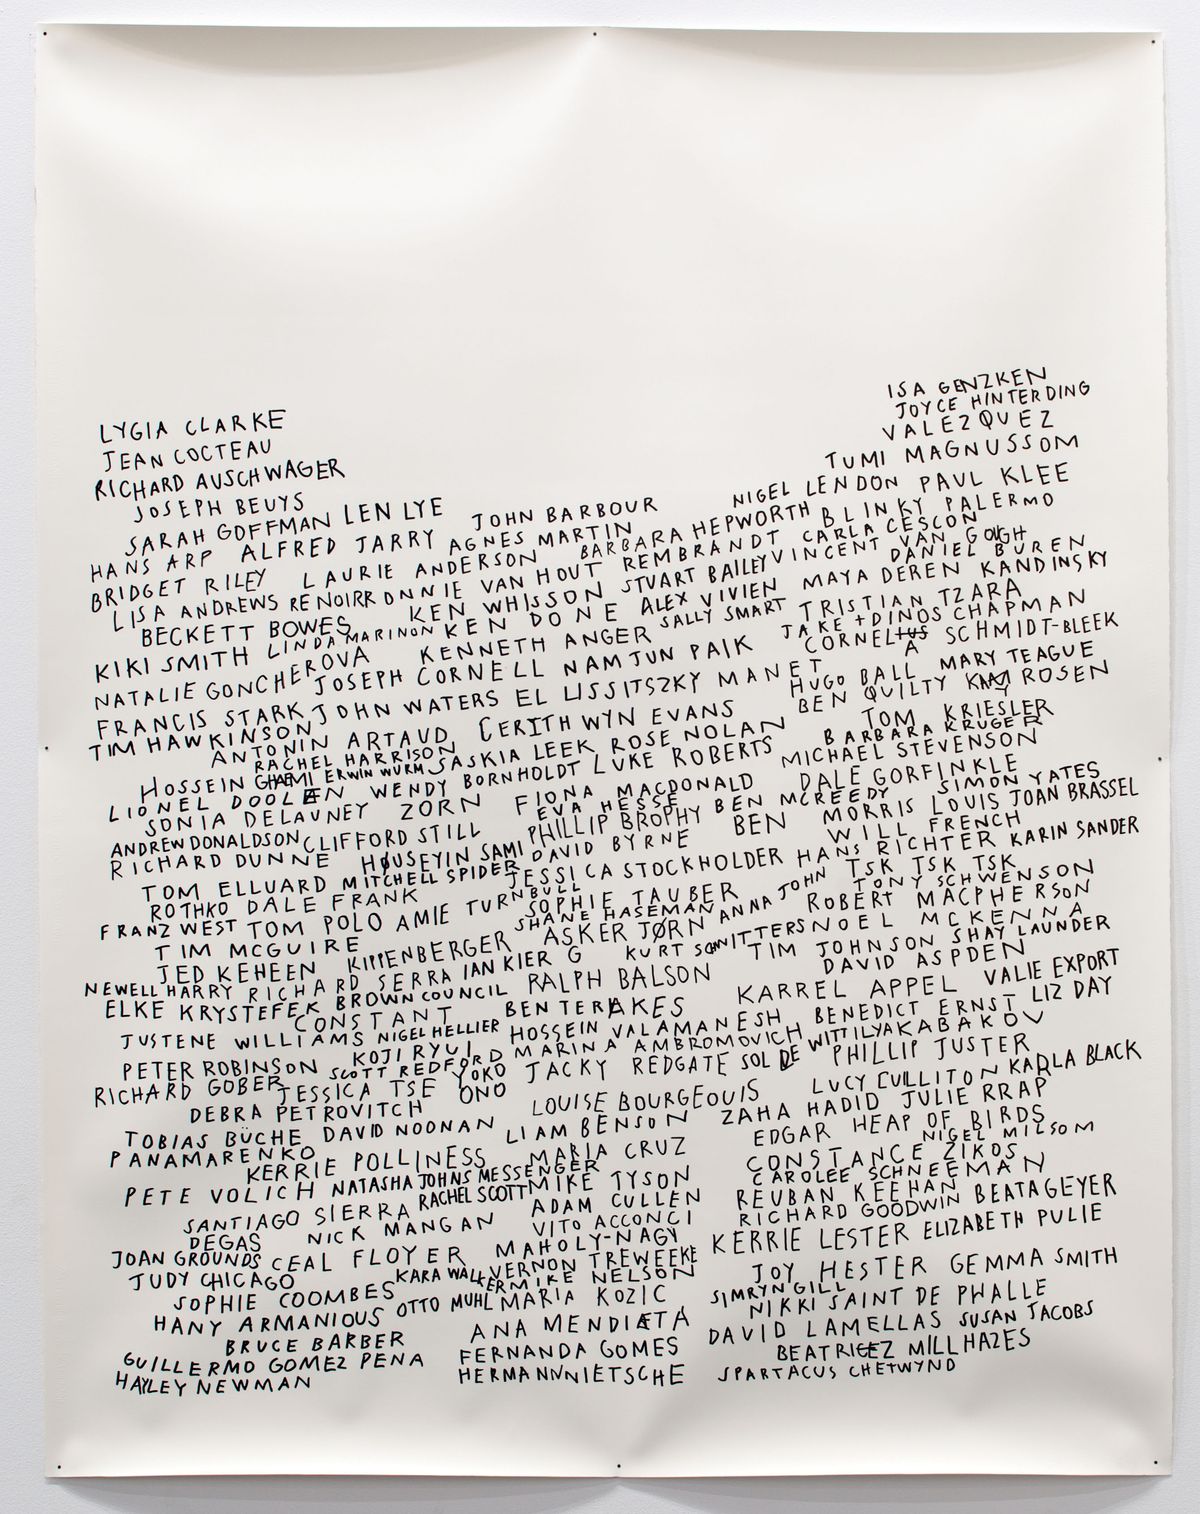 ISA GENZKEN
JOYCE HINTERDING
LYGIA CLARKE
VALEZQUEZ
JEAN COCTEAU
TUMI MAGNUSSOM
RICHARD AUSCHWAGER
JOSEPH BEUYS
NIGEL LENDON PAUL KLEE
SARAH GOFFMAN LEN LYE
JOHN BARBOUR
BARBARA HEPWORTH BLINKY PALERMO
HANS ARP ALFRED JARRY AGNES MARTIN
REMBRANDT CARLA CESCON
BRIDGET RILEY LAURIE ANDERSON
STUART BAILEY VINCENT VAN GOUGH
LISA ANDREWS RENOIR RONNIE VAN HOUT
DANIEL BUREN
BECKETT BOWES KEN WHISSON
ALEX VIVIEN MAYA DEREN KANDINSKY
KIKI SMITH LINDA MARINON KEN DONE
SALLY SMART TRISTIAN TZARA
NATALIE GONCHEROVA KENNETH ANGER
JAKE + DINOS CHAPMAN
JOSEPH CORNELL NAM JUN PAIK
CORNELIUS A SCHMIDT-BLEEK
FRANCIS STARK JOHN WATERS EL LISSITSZKY MANET
HUGO BALL MARY TEAGUE
TIM HAWKINSON
BEN QUILTY KAY ROSEN
ANTONIN ARTAUD CERITH WYN EVANS
RACHEL HARRISON
TOM KRIESLER
HOSSEIN GHAEMI ERWIN WURM SASKIA LEEK ROSE NOLAN
BARBARA KRUGER
LIONEL DOOLAN WENDY BORNHOLDT LUKE ROBERTS
MICHAEL STEVENSON
SONIA DELAUNEY ZORN FIONA MACDONALD
DALE GORFINKLE
ANDREW DONALDSON CLIFFORD STILL EVA HESSE
BEN MCREEDY SIMON YATES
RICHARD DUNNE HOUSEYIN SAMI PHILLIP BROPHY
BEN MORRIS LOUIS JOAN BRASSEL
WILL FRENCH
TOM ELLUARD MITCHELL SPIDER DAVID BYRNE
HANS RICHTER KARIN SANDER
ROTHKO DALE FRANK JESSICA STOCKHOLDER
TSK TSK TSK
FRANZ WEST TOM POLO AMIE TURNBULL
SOPHIE TAUBER ANNA JOHN TONY SCHWENSON
TIM MCGUIRE SHANE HASEMAN
ROBERT MACPHERSON
JED KEHEEN KIPPENBERGER ASKER JØRN
NOEL MCKENNA
NEWELL HARRY RICHARD SERRA IAN KIER G
KURT SCHWITTERS TIM JOHNSON SHAY LAUNDER
ELKE KRYSTEFEK BROWN COUNCIL RALPH BALSON
DAVID ASPDEN
CONSTANT BEN TERAKES
KARREL APPEL VALIE EXPORT
JUSTENE WILLIAMS NIGEL HELLIER HOSSEIN VALAMANESH
BENEDICT ERNST LIZ DAY
PETER ROBINSON KOJI RYUI
MARINA AMBROMOVICH
SCOTT REDFORD
SOL DE WITT ILYA KABAKOV
RICHARD GOBER JESSICA TSE YOKO ONO
JACKY REDGATE
PHILLIP JUSTER
DEBRA PETROVITCH LOUISE BOURGEOUIS
LUCY CULLITON KARLA BLACK
TOBIAS BÜCHE DAVID NOONAN LIAM BENSON
ZAHA HADID JULIE RRAP
PANAMARENKO
EDGAR HEAP OF BIRDS
KERRIE POLLINESS MARIA CRUZ
NIGEL MILSOM
CONSTANCE ZIKOS
PETE VOLICH NATASHA JOHNS MESSENGER
CAROLEE SCHNEEMAN
RACHEL SCOTT MIKE TYSON
REUBAN KEEHAN
SANTIAGO SIERRA ADAM CULLEN
RICHARD GOODWIN BEATA GEYER
DEGAS NICK MANGAN VITO ACCONCI
JOAN GROUNDS CEAL FLOYER MAHOLY-NAGY
KERRIE LESTER ELIZABETH PULIE
JUDY CHICAGO KARA WALKER VERNON TREWEEKE
JOY HESTER GEMMA SMITH
SOPHIE COOMBES MIKE NELSON
SIMRYN GILL
HANY ARMANIOUS OTTO MUHL MARIA KOZIC
NIKKI SAINT DE PHALLE
BRUCE BARBER ANA MENDIETA
DAVID LAMELLAS SUSAN JACOBS
GUILLERMO GOMEZ PENA FERNANDA GOMES
BEATRIEZ MILLHAZES
HAYLEY NEWMAN HERMANN NIETSCHE
SPARTACUS CHETWYND